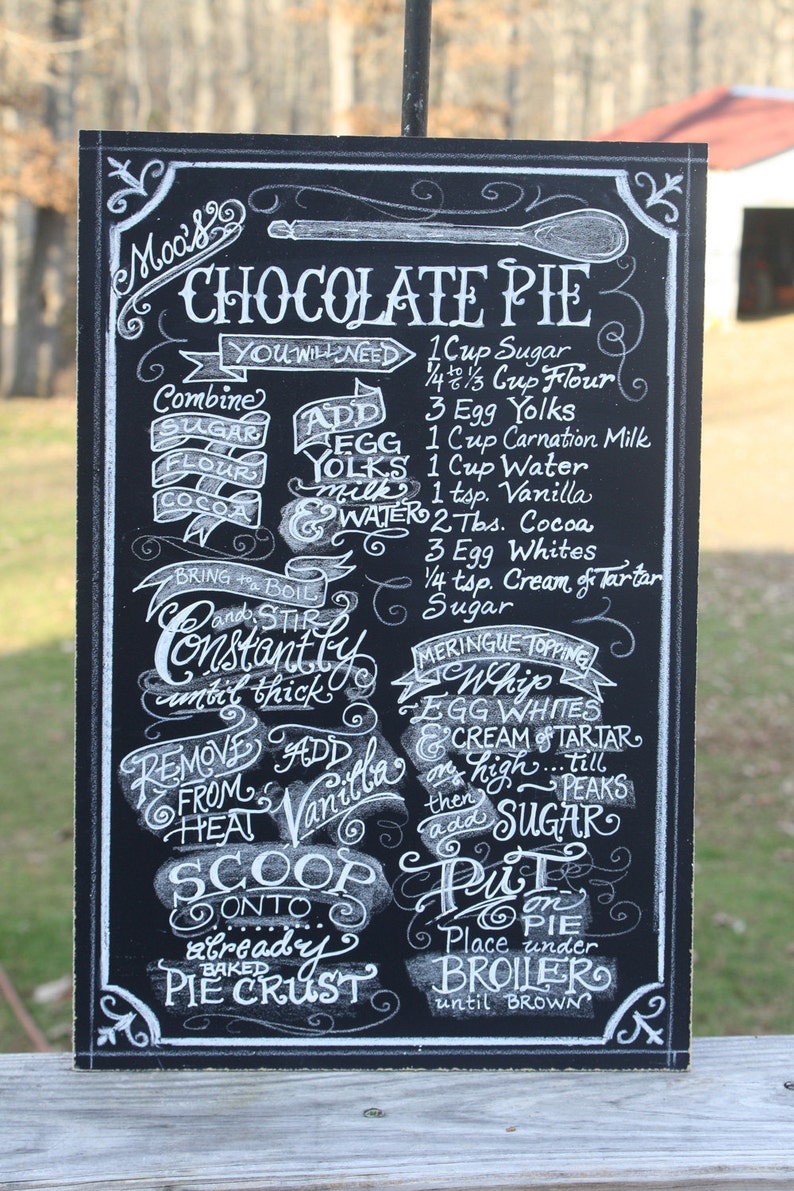 Moo's
CHOCOLATE PIE
YOU WILL NEED
1 Cup Sugar
1/4 to 1/3 Cup Flour
3 Egg Yolks
1 Cup Carnation Milk
1 Cup Water
1 tsp. Vanilla
2 Tbs. Cocoa
3 Egg Whites
1/4 tsp. Cream of Tartar
Sugar
Combine
SUGAR
FLOUR
COCOA
ADD
EGG
YOLKS
milk
& WATER
BRING to a BOIL
and STIR
Constantly
until thick
REMOVE
FROM
HEAT
ADD
Vanilla
SCOOP
ONTO
already
BAKED
PIE CRUST
MERINGUE TOPPING
Whip
EGG WHITES
& CREAM of TARTAR
on high...till
PEAKS
then
add SUGAR
PUT
on
PIE
Place under
BROILER
until BROWN